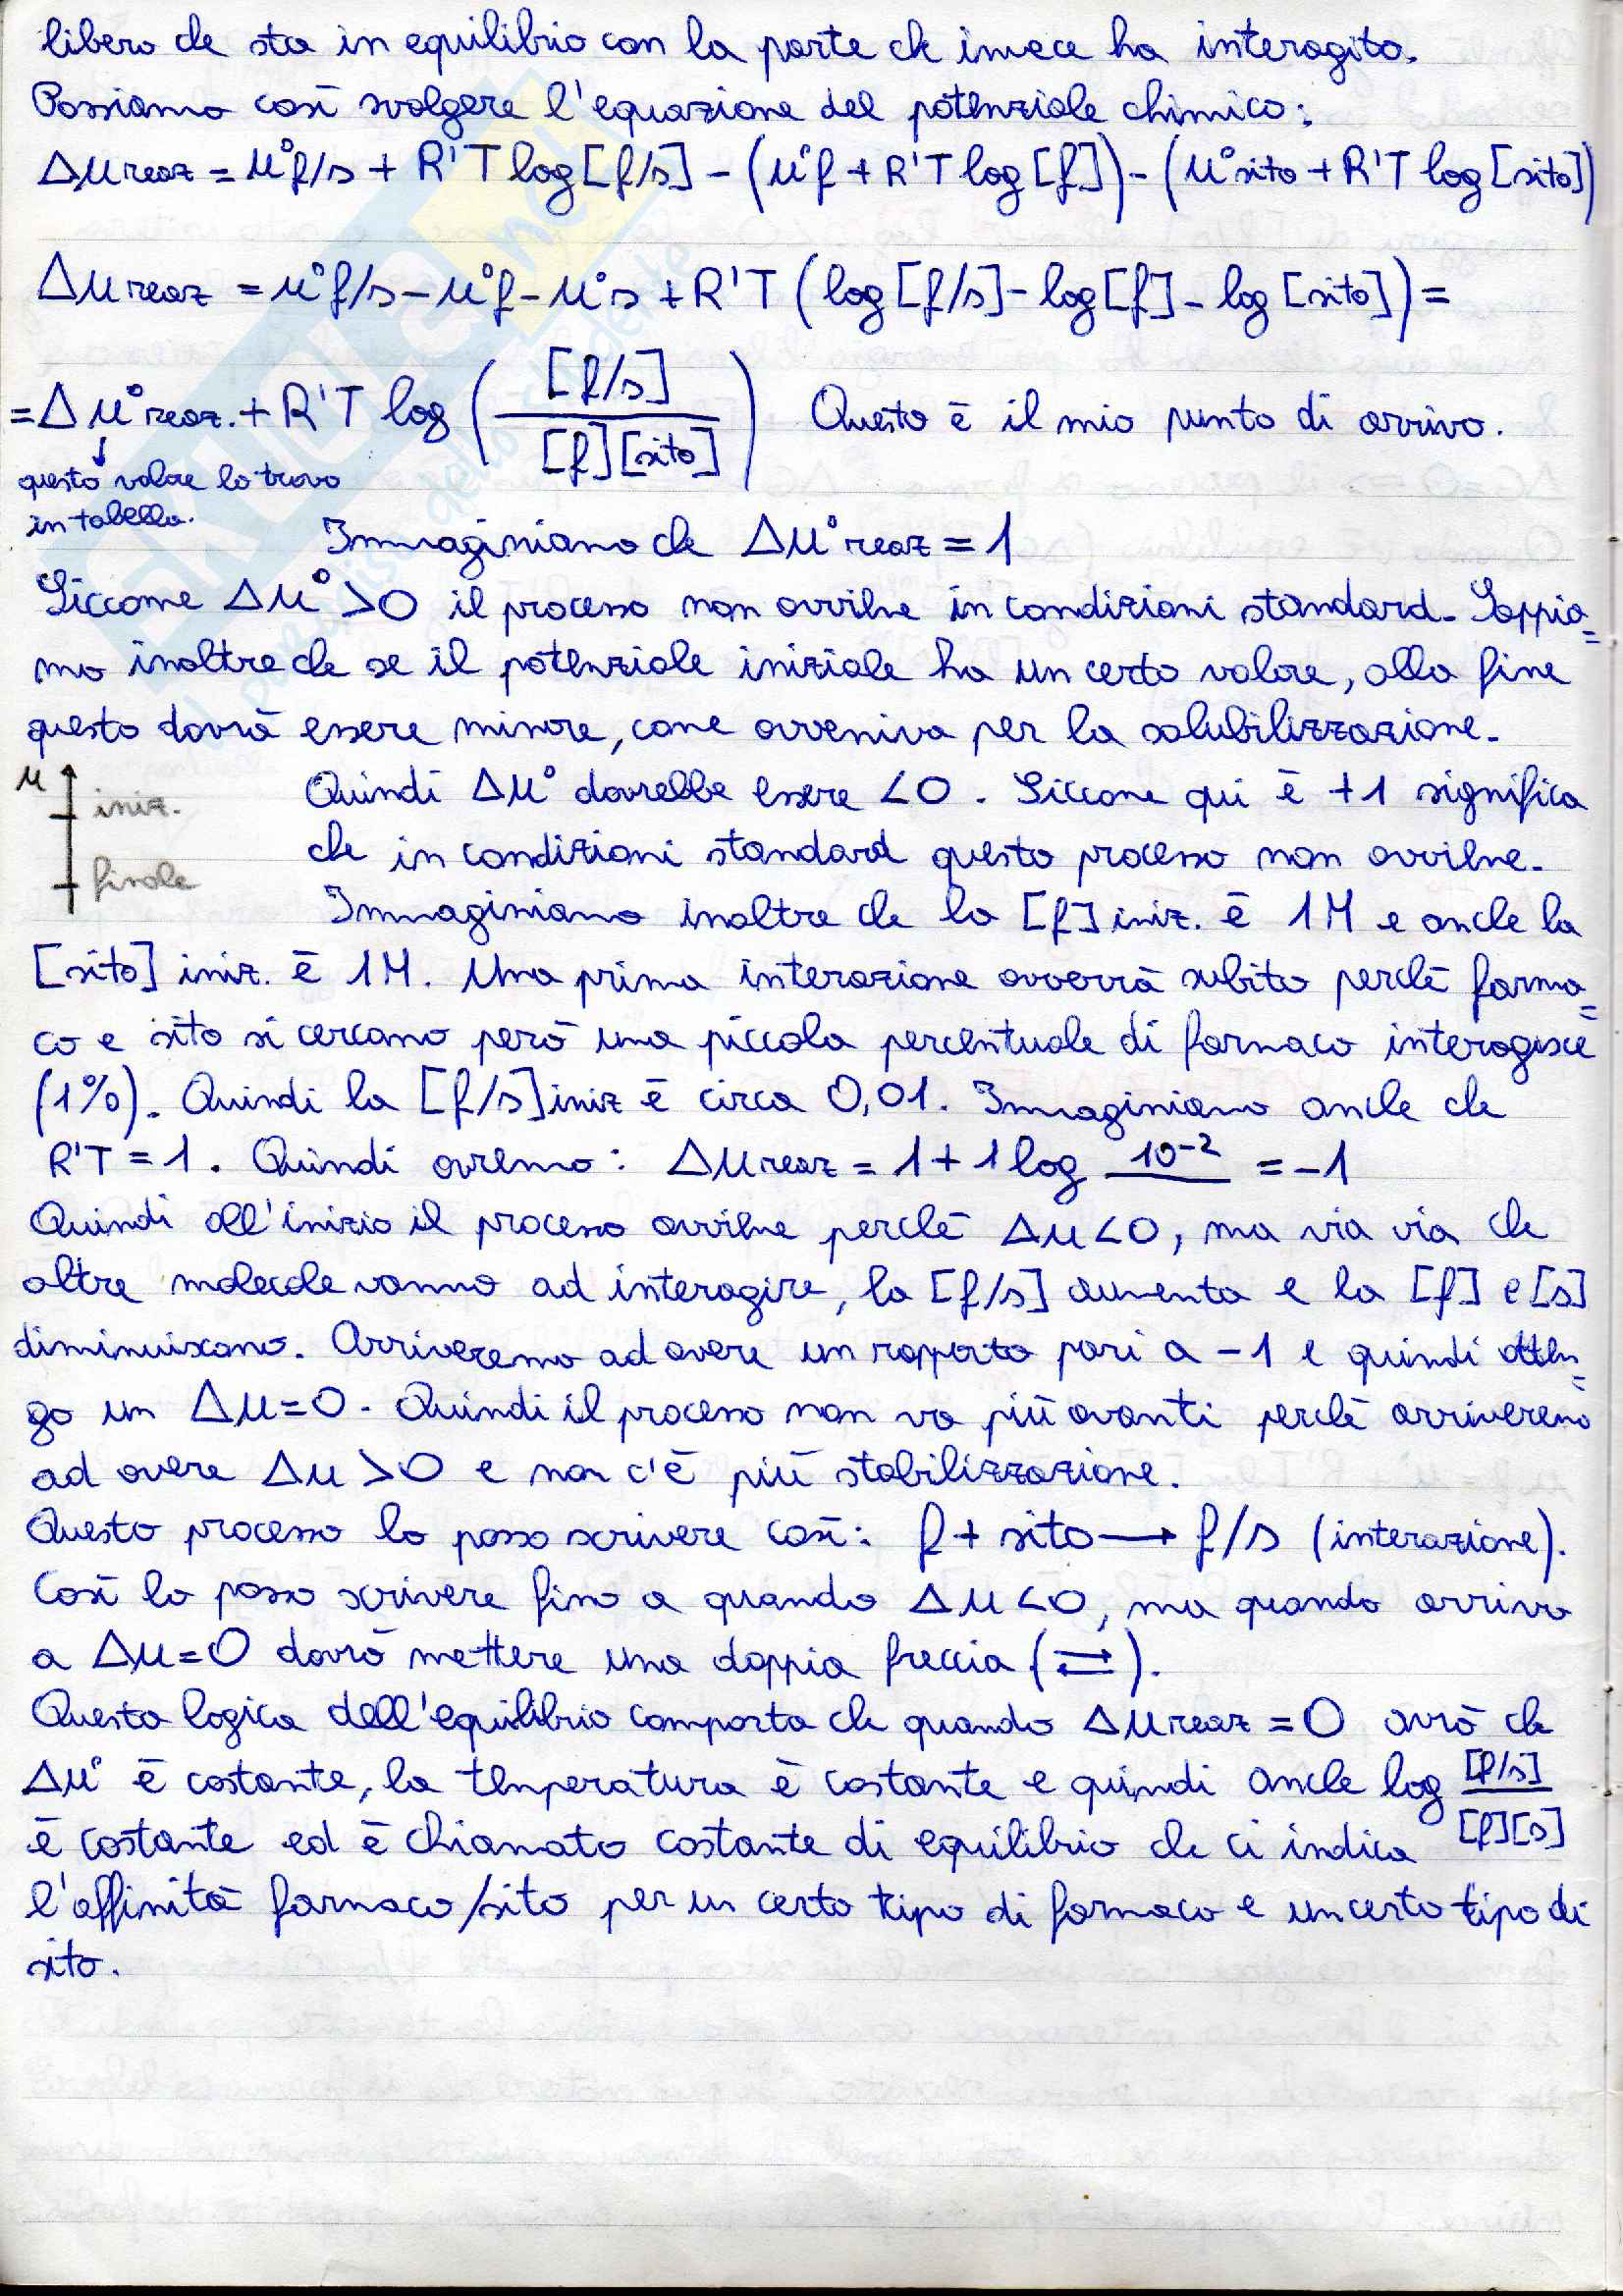 libero che sta in equilibrio con la parte che invece ha interagito.
Possiamo così svolgere l'equazione del potenziale chimico:
Δμreaz = μ°f/s + R'T log[f/s] - (μ°f + R'T log[f]) - (μ°sito + R'T log[sito])
Δμreaz = μ°f/s - μ°f - μ°s + R'T (log[f/s] - log[f] - log[sito]) =
= Δμ°reaz. + R'T log ([f/s] / [f][sito]) Questo è il mio punto di arrivo.
questo valore lo trovo
in tabella.
Immaginiamo che Δμ°reaz = 1
Siccome Δμ° >0 il processo non avviene in condizioni standard. Sappia=
mo inoltre che se il potenziale iniziale ha un certo valore, alla fine
questo dovrà essere minore, come avveniva per la solubilizzazione.
μ iniz.
finale
Quindi Δμ° dovrebbe essere <0. Siccome qui è +1 significa
che in condizioni standard questo processo non avviene.
Immaginiamo inoltre che la [f] iniz. è 1M e anche la
[sito] iniz. è 1M. Una prima interazione avverrà subito perchè farma=
co e sito si cercano però una piccola percentuale di farmaco interagisce
(1%). Quindi la [f/s]iniz è circa 0,01. Immaginiamo anche che
R'T = 1. Quindi avremo: Δμreaz = 1 + 1 log 10⁻² = -1
Quindi all'inizio il processo avviene perchè Δμ<0, ma via via che
altre molecole vanno ad interagire, la [f/s] aumenta e la [f] e [s]
diminuiscono. Arriveremo ad avere un rapporto pari a -1 e quindi otten=
go un Δμ=0. Quindi il processo non va più avanti perchè arriveremo
ad avere Δμ >0 e non c'è più stabilizzazione.
Questo processo lo posso scrivere così: f + sito → f/s (interazione).
Così lo posso scrivere fino a quando Δμ<0, ma quando arrivo
a Δμ=0 dovrò mettere una doppia freccia (⇄).
Questa logica dell'equilibrio comporta che quando Δμreaz = 0 avrò che
Δμ° è costante, la temperatura è costante e quindi anche log [f/s]
è costante ed è chiamato costante di equilibrio che ci indica [f][s]
l'affinità farmaco/sito per un certo tipo di farmaco e un certo tipo di
sito.